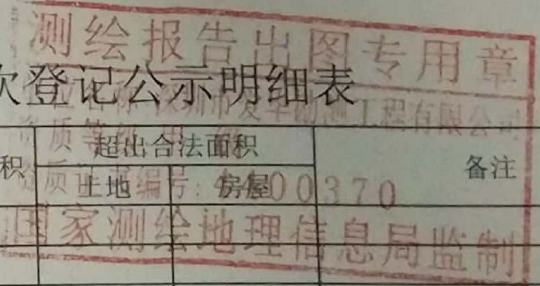 测绘报告出图专用章
次登记公示明细表
工程有限公司
资质等
超出合法面积
积
备注
土地
房屋
资质证 编号: 4400370
国家测绘地理信息局监制